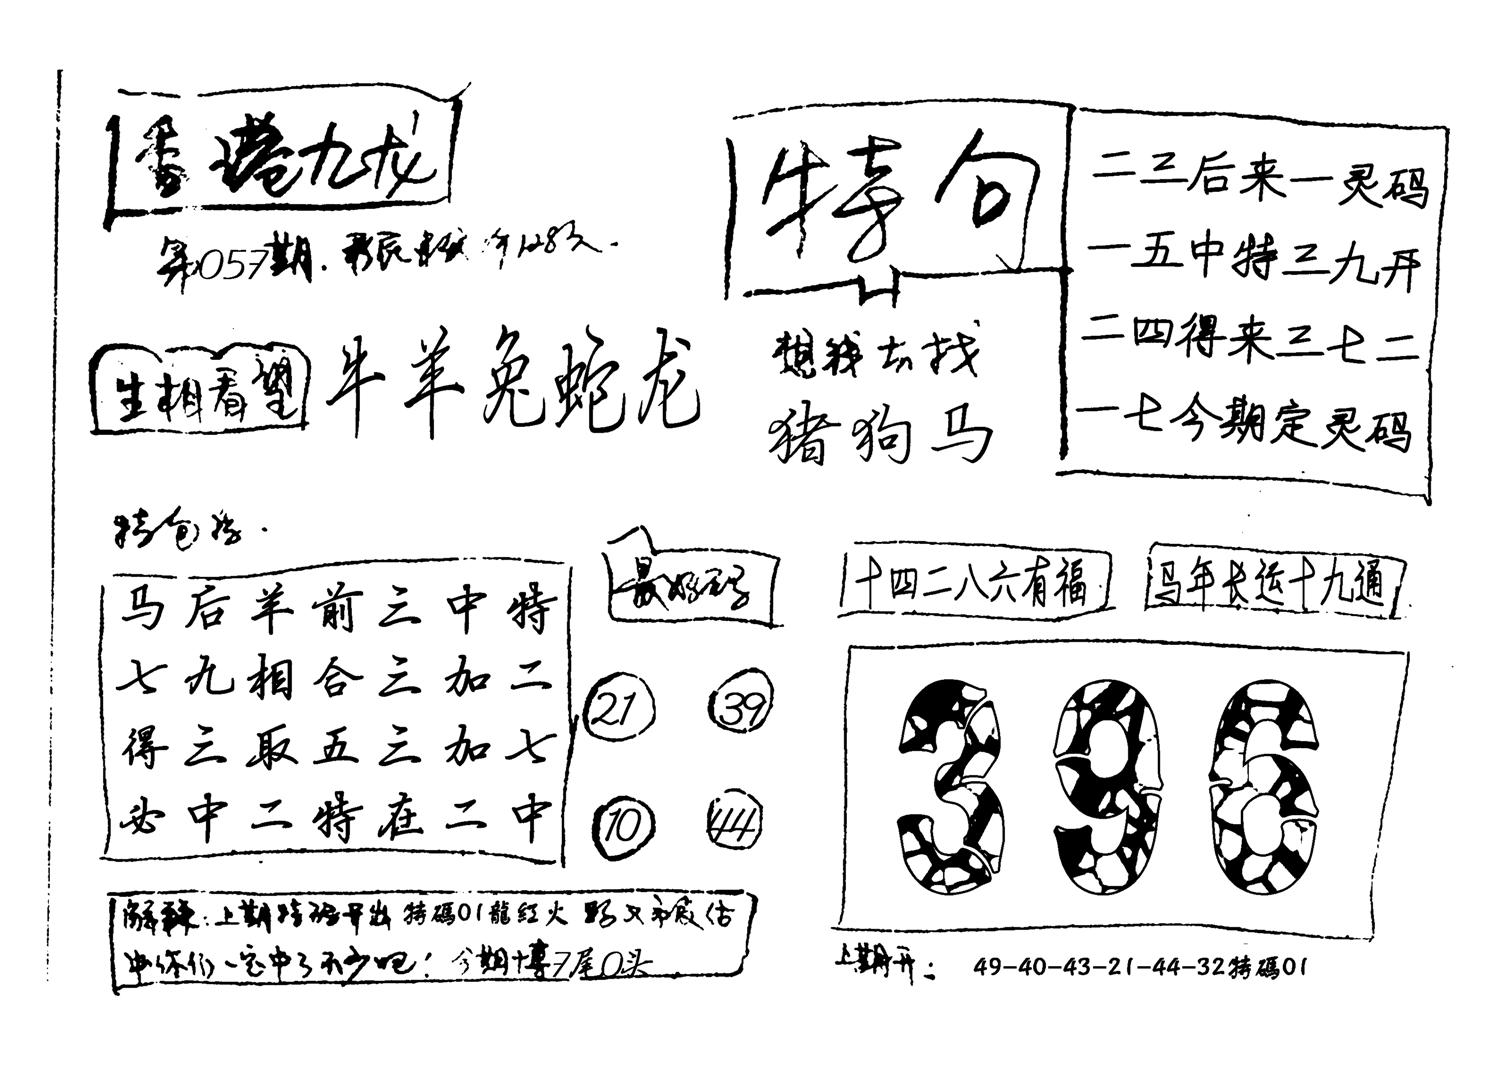 香港九龙
第057期.
生相看望
牛羊兔蛇龙
特句
想我去找
猪狗马
二三后来一灵码
一五中特三九开
二四得来三七二
一七今期定灵码
马后羊前三中特
七九相合三加二
得三取五三加七
必中二特在二中
最好码
21 39
10 44
十四二八六有福
马年长运十九通
396
上期特码开出特碼01龍红火
你们一定中了不少吧！今期博7尾0头
上期开：
49-40-43-21-44-32特碼01